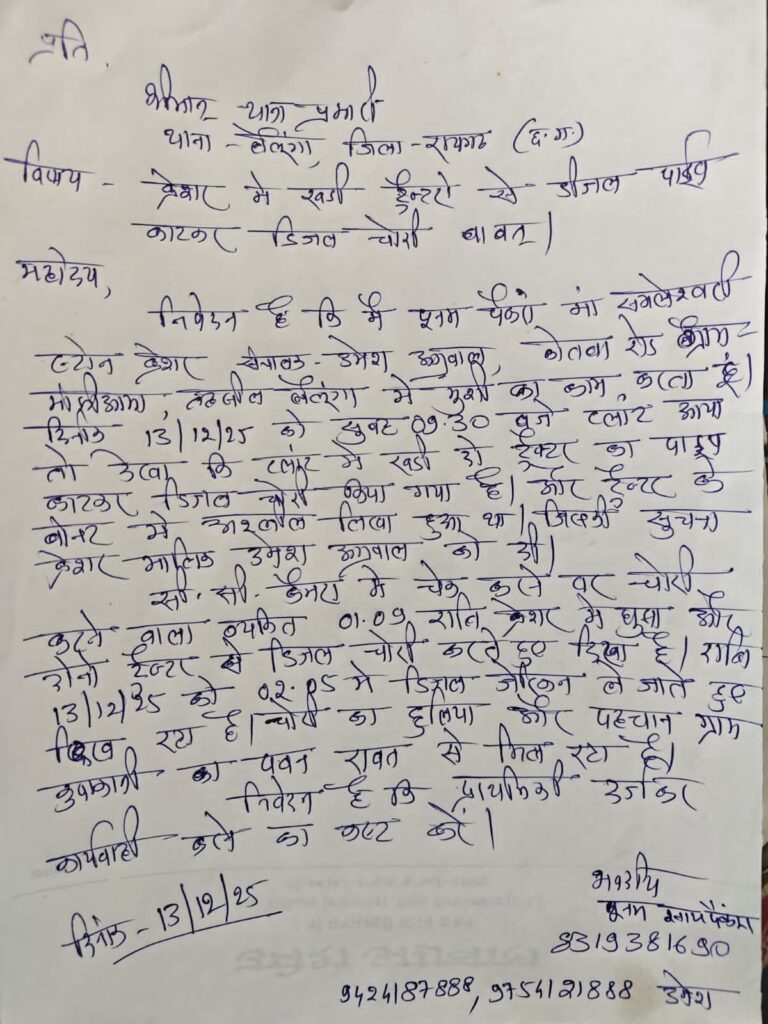 प्रति,
श्रीमान् थाना प्रभारी
थाना - बेलिंगा, जिला - रायगढ (छ.ग.)
विषय - क्रेशर मे खडी ट्रैक्टरो से डीजल पाईप
काटकर डिजल चोरी बाबत् |
महोदय,
निवेदन है कि मै पूनम पैकरा मां सम्लेश्वरी
स्टोन क्रेशर संचालक - उमेश अग्रवाल, केतवा रोड ग्राम -
तहसील बेलिंगा मे मुंशी का काम करता हूं।
दिनांक 13/12/25 को सुबह 09:30 बजे प्लांट आया
तो देखा कि प्लांट मे खडी दो ट्रैक्टर का पाइप
काटकर डिजल चोरी किया गया है| और ट्रैक्टर के
बोनट मे अश्लील लिखा हुआ था| जिसकी सुचना
क्रेशर मालिक उमेश अग्रवाल को दी।
सी. सी. कैमरा मे चेक करने पर चोरी
करने वाला व्यक्ति 01.09 रात्रि क्रेशर मे घुसा और
दोनो ट्रैक्टर से डिजल चोरी करते हुए दिखा है| रात्रि
13/12/25 को 02.05 मे डिजल जरिकन ले जाते हुए
दिख रहा है| चोरी का हुलिया और पहचान ग्राम
का पवन रावत से मिल रहा है।
निवेदन है कि प्राथमिकी दर्ज कर
कार्यवाही करने का कष्ट करें |
दिनांक - 13/12/25
भवदीय
पूनम साय पैकरा
8319381690
9424187888, 9754121888 उमेश